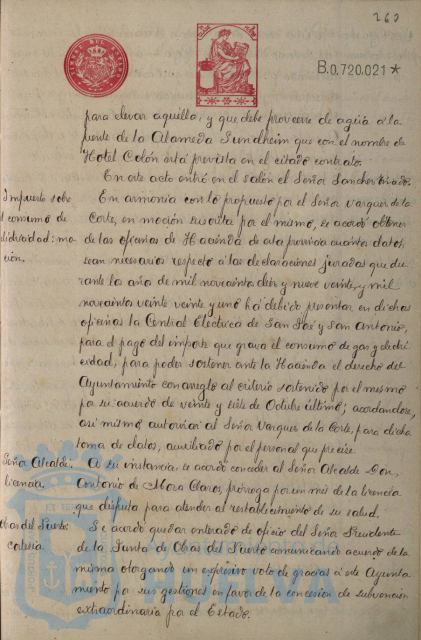 260
B.0.720.021*
para elevar aquella, y que debe proveerse de agua a la
fuente de la Alameda Sundheim que con el nombre de
Hotel Colón está prevista en el citado contrato.
En este acto entró en el salón el Señor Sanchez
Impuesto sobre
el consumo de
electricidad: mo-
ción.
En armonia con lo propuesto por el Señor Vazquez de la
Corte, en moción suscrita por el mismo, se acordó obtener
de las oficinas de Hacienda de esta provincia cuantos datos,
sean necesarios respecto á las declaraciones juradas que du-
rante los años de mil novecientos diez y nueve veinte, y mil
novecientos veinte veinte y uno há debido presentar en dichas
oficinas la Central Electrica de San José y San Antonio,
para el pago del impuesto que grava el consumo de gas y electri-
cidad, para poder sostener ante la Hacienda el derecho del
Ayuntamiento con arreglo al criterio sostenido por el mismo
por su acuerdo de veinte y siete de Octubre último; acordandose,
asi mismo autorizar al Señor Vazquez de la Corte, para dicha
toma de datos, auxiliado por el personal que precise.
Señor Alcalde:
licencia.
A su instancia se acordó conceder al Señor Alcalde Don
Antonio de Mora Claros, prórroga por un mes de la licencia
que disfruta para atender al restablecimiento de su salud.
Obras del Puerto:
cortesía.
Se acordó quedar enterado de oficio del Señor Presidente
de la Junta de Obras del Puerto comunicando acuerdo de la
misma otorgando un expresivo voto de gracias á este Ayunta-
miento por sus gestiones en favor de la concesion de subvención
extraordinaria por el Estado.